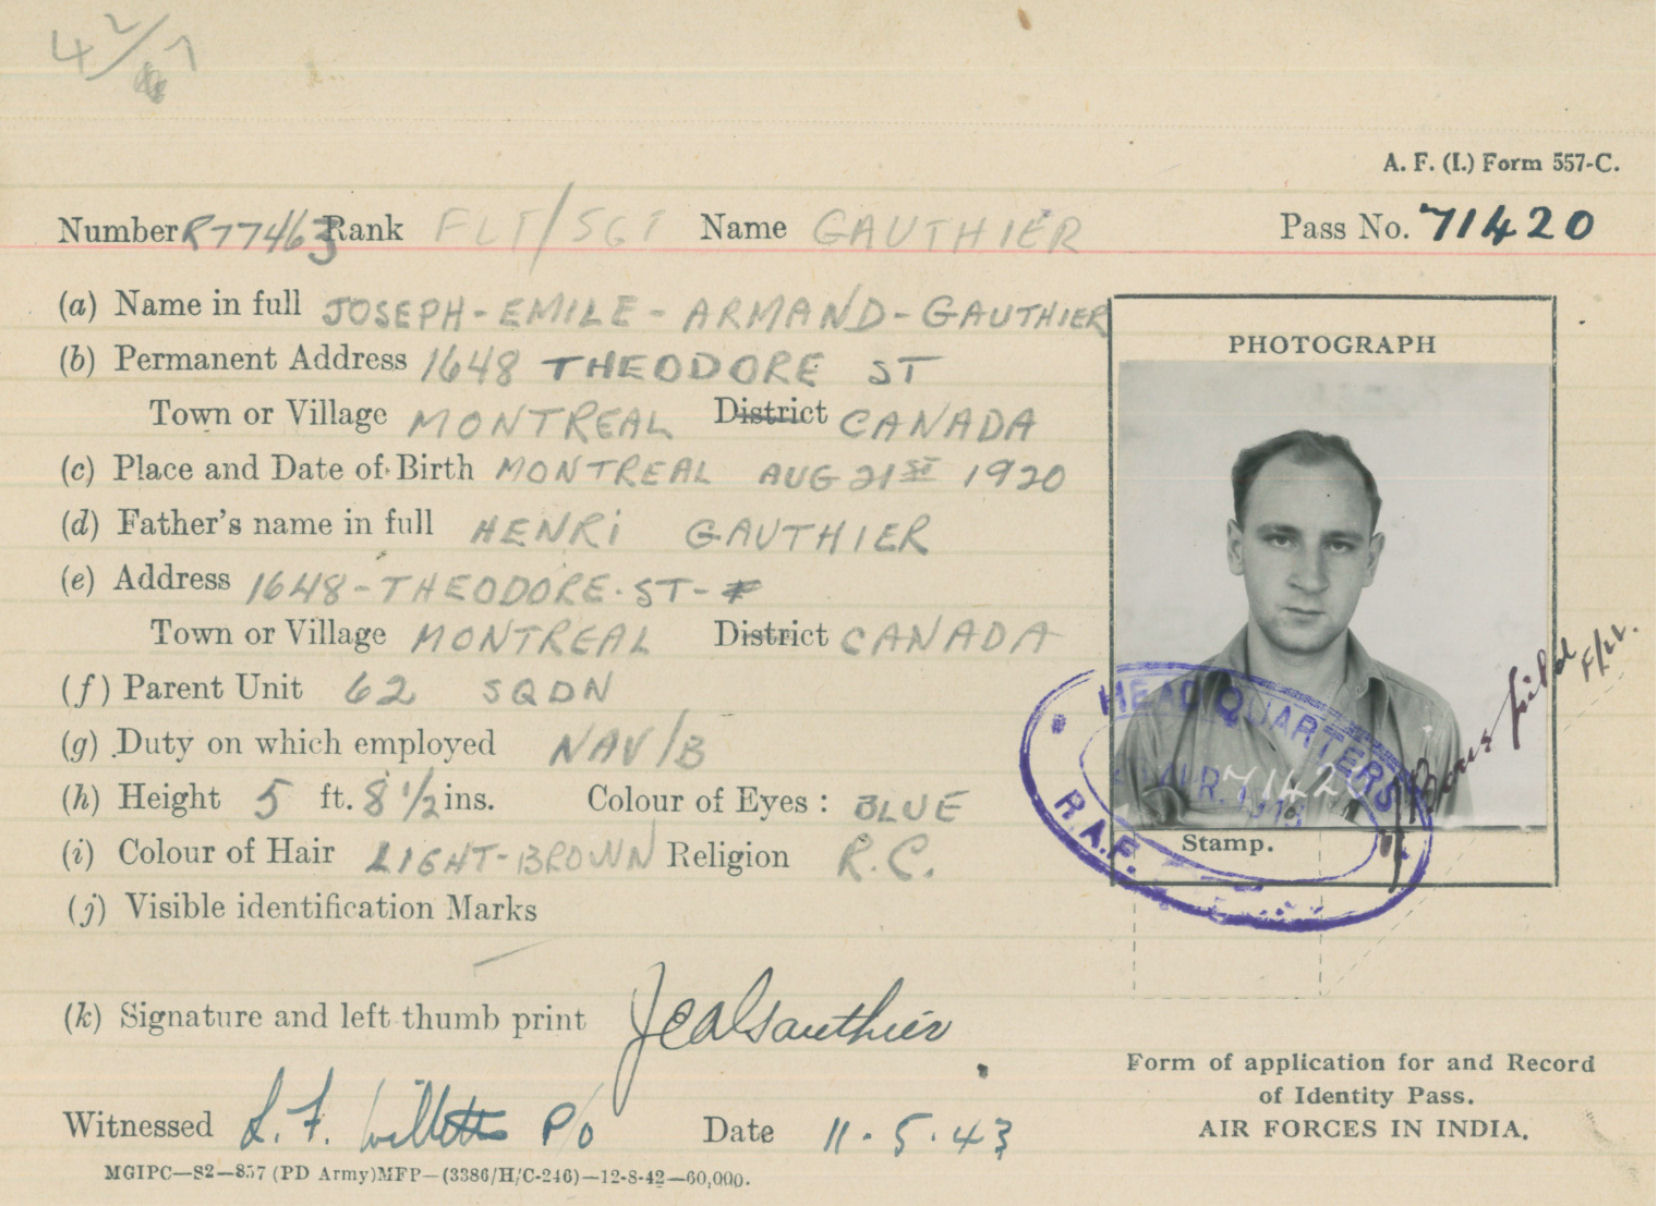 A. F. (I.) Form 557-C.
Number R77463 Rank FLT/SGT Name GAUTHIER Pass No. 71420
(a) Name in full JOSEPH-EMILE-ARMAND-GAUTHIER
(b) Permanent Address 1648 THEODORE ST
Town or Village MONTREAL District CANADA
(c) Place and Date of Birth MONTREAL AUG 21ST 1920
(d) Father's name in full HENRi GAUTHIER
(e) Address 1648-THEODORE. ST-
Town or Village MONTREAL District CANADA
(f) Parent Unit 62 SQDN
(g) Duty on which employed NAV/B
(h) Height 5 ft. 8 1/2 ins. Colour of Eyes : BLUE
(i) Colour of Hair LIGHT-BROWN Religion R.C.
(j) Visible identification Marks
(k) Signature and left thumb print JEAGauthier
Witnessed L. F. Willetts P/O Date 11.5.43
MGIPC—S2—857 (PD Army)MFP—(3386/H/C-246)—12-8-42—60,000.
PHOTOGRAPH
HEADQUARTERS
R.A.F.
7142
Stamp.
Bousfield F/Lt.
Form of application for and Record
of Identity Pass.
AIR FORCES IN INDIA.